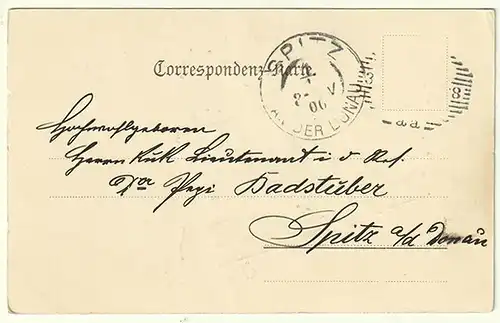 Correspondenz-Karte.
SPITZ
AN DER DONAU
Hochwohlgeboren
Herrn KuK Lieutenant i d Res.
Dor Pepi Badstüber
Spitz a/d Donau